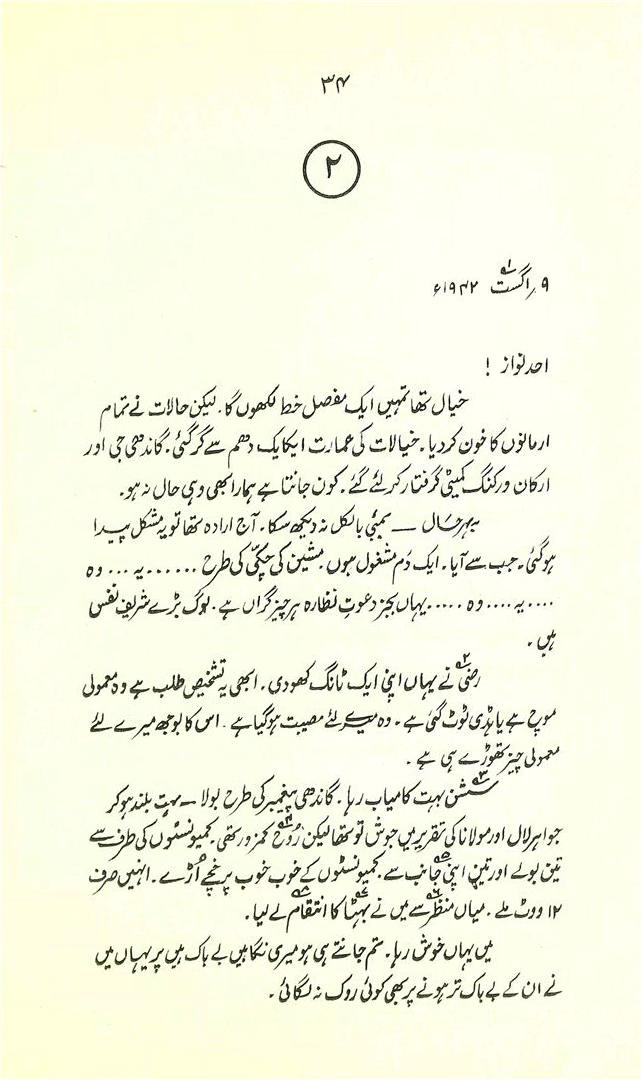 ۳۴
۲
۹؍ اگست ۱؎ ۱۹۴۲ء
احمد نواز !
خیال تھا تمہیں ایک مفصل خط لکھوں گا۔ لیکن حالات نے تمام
ارمانوں کا خون کر دیا۔ خیالات کی عمارت ایکا یک دھم سے گر گئی۔ گاندھی جی اور
ارکان ورکنگ کمیٹی گرفتار کر لئے گئے۔ کون جانتا ہے ہمارا بھی وہی حال نہ ہو۔
بہر حال — بمبئی بالکل نہ دیکھ سکا۔ آج ارادہ تھا تو یہ مشکل پیدا
ہو گئی۔ جب سے آیا۔ ایک دُم مشغول ہوں۔ مشین کی چکّی کی طرح ...... یہ ... وہ
.... یہ .... وہ ..... یہاں بجز دعوتِ نظارہ ہر چیز گراں ہے۔ لوگ بڑے شریف نفس
ہیں۔
رضی ۲؎ نے یہاں اپنی ایک ٹانگ کھو دی۔ ابھی یہ تشخیص طلب ہے وہ معمولی
موچ ہے یا ہڈی ٹوٹ گئی ہے۔ وہ میرے لئے مصیبت ہو گیا ہے۔ اس کا بوجھ میرے لئے
معمولی چیز تھوڑے ہی ہے۔
سشن ۳؎ بہت کامیاب رہا۔ گاندھی پیغمبر کی طرح بولا — بہت بلند ہو کر
جواہر لال اور مولانا کی تقریر میں جوش تو تھا لیکن رُوح ۴؎ کمزور تھی۔ کمیونسٹوں کی طرف سے
تین بولے اور تین اپنی ۵؎ جانب سے۔ کمیونسٹوں کے خوب خوب پرخچے اُڑے۔ انہیں صرف
۱۲ ووٹ ملے۔ میاں منظر ۶؎ سے میں نے بھیّا ۷؎ کا انتقام ۸؎ لے لیا۔
میں یہاں خوش رہا۔ تم جانتے ہی ہو میری نگاہیں بے باک ہیں پر یہاں میں
نے ان کے بے باک تر ہونے پر بھی کوئی روک نہ لگائی۔